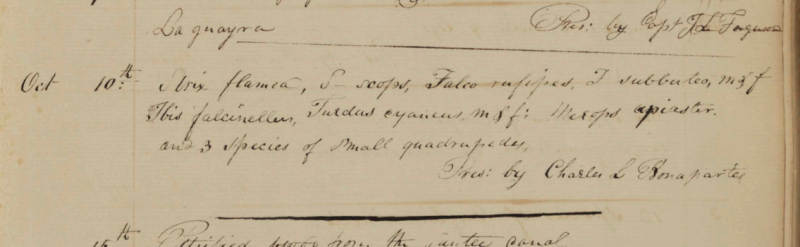 Laguayra Pres: by Capt J L Ferguson
Oct 10.th Strix flamea, S— scops, Falco rufipes, F subbuteo, m & f
Ibis falcinellus, Turdus cyaneus m & f: Merops apiaster.
and 3 species of small quadrupedes,
Pres: by Charles L Bonaparte
15th Petrified wood from the santee canal